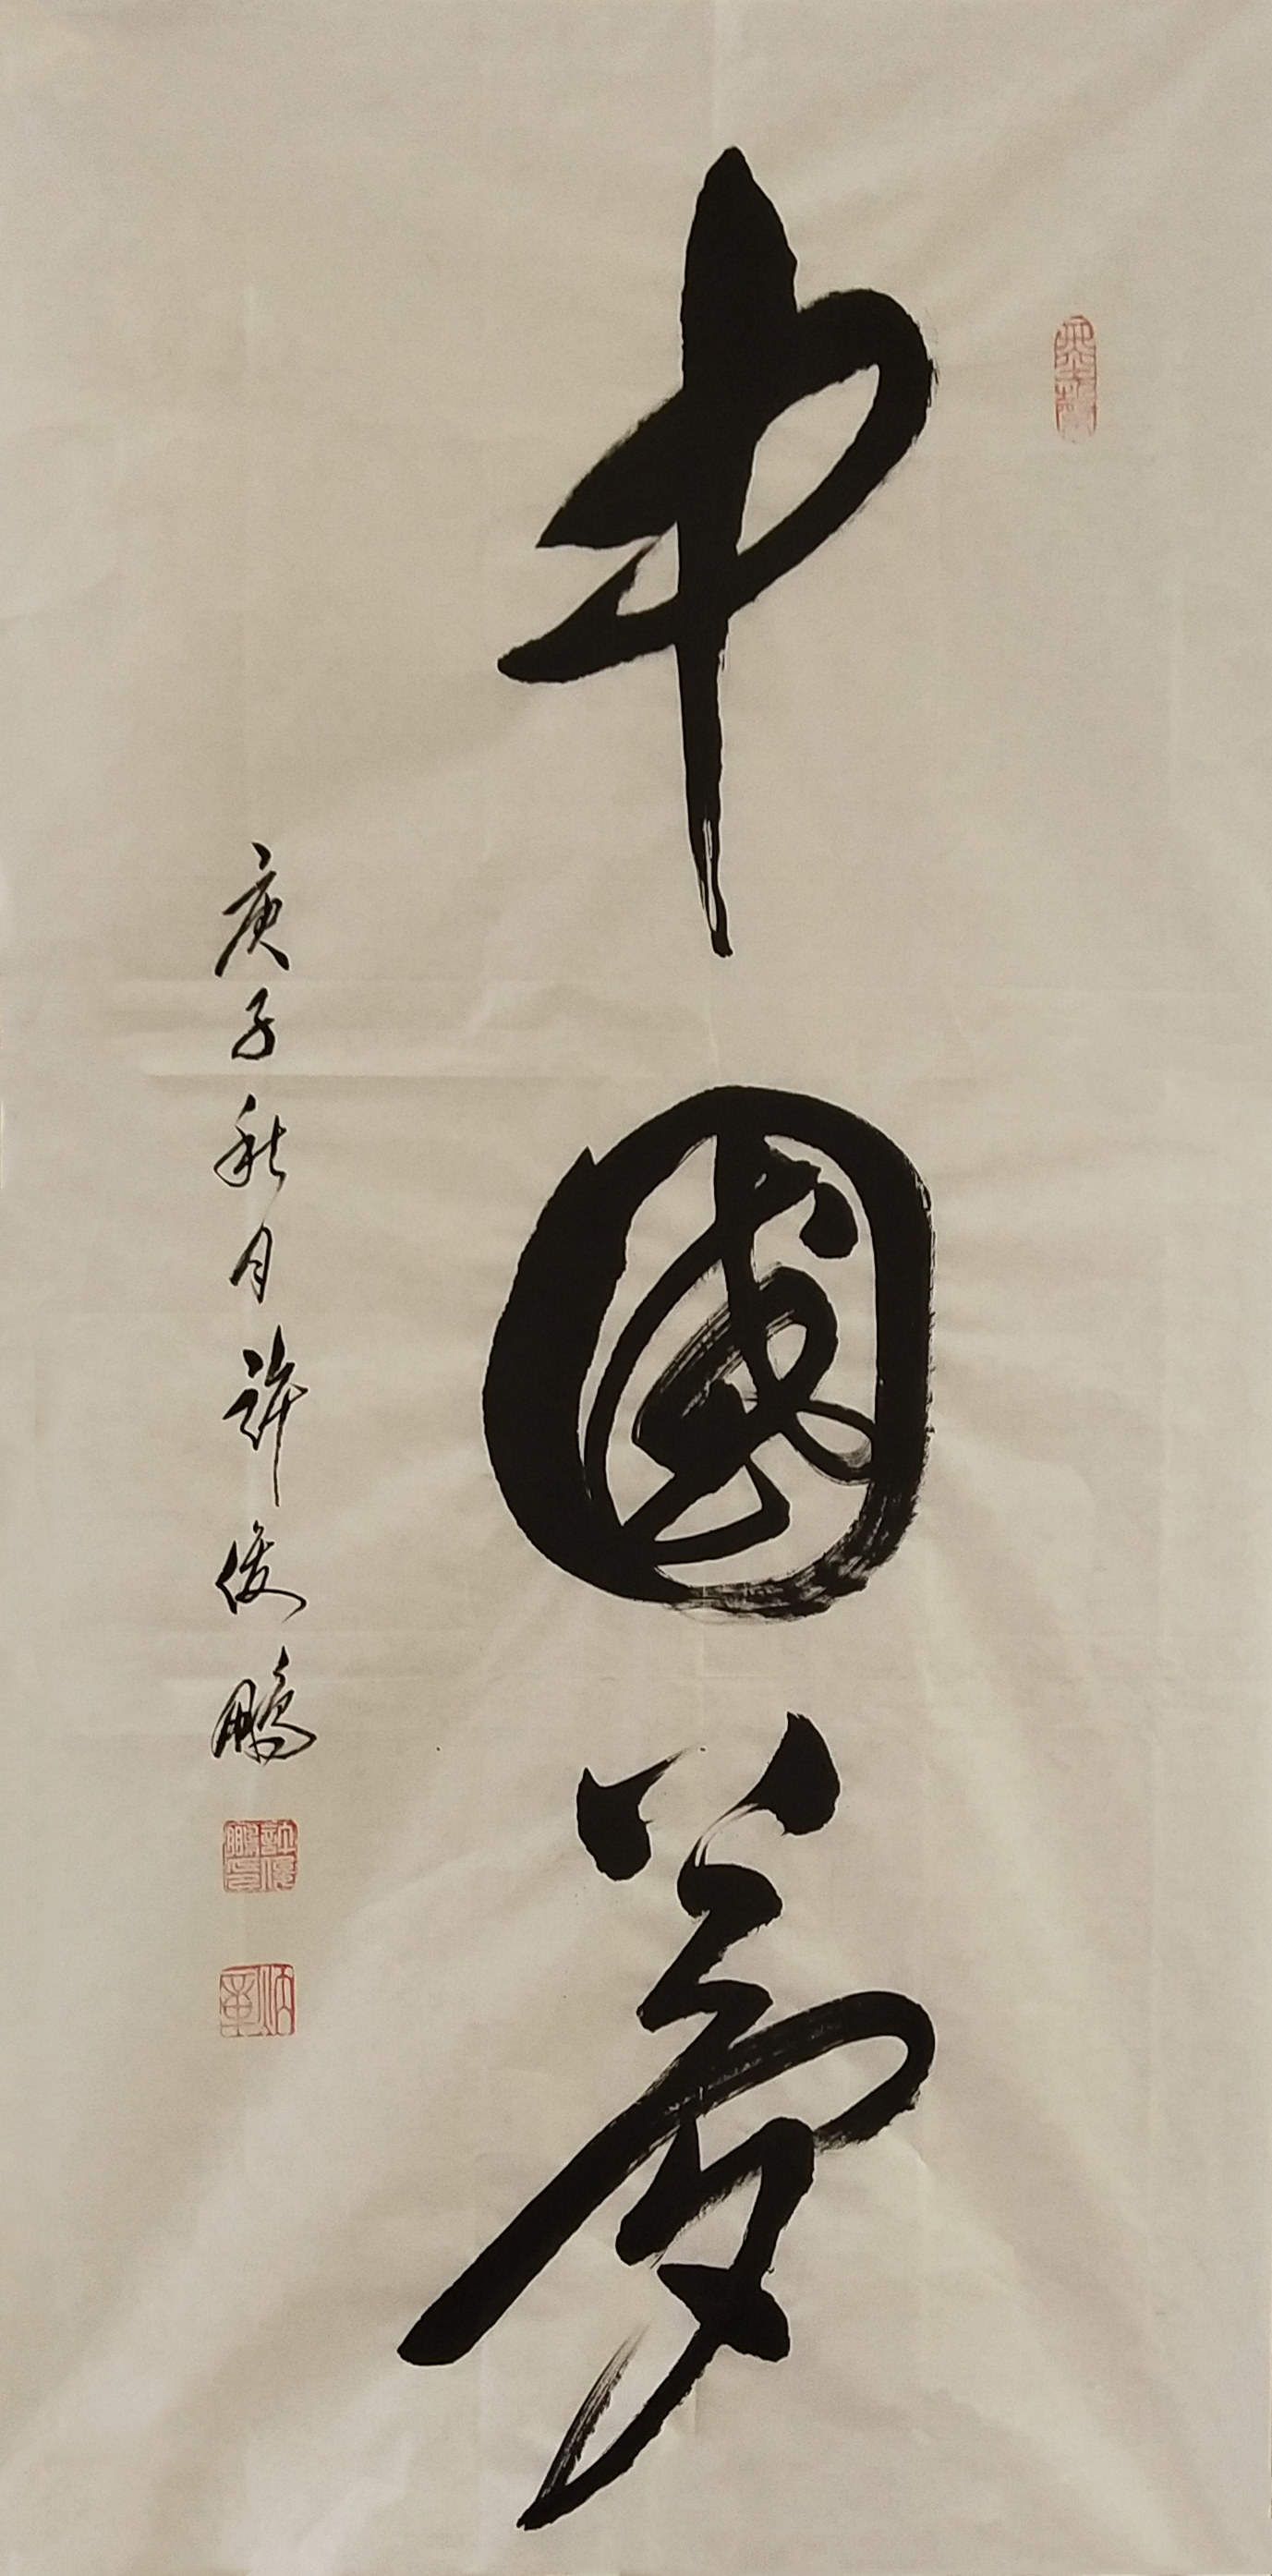 中國夢
庚子秋月許俊鵬
許俊鵬印